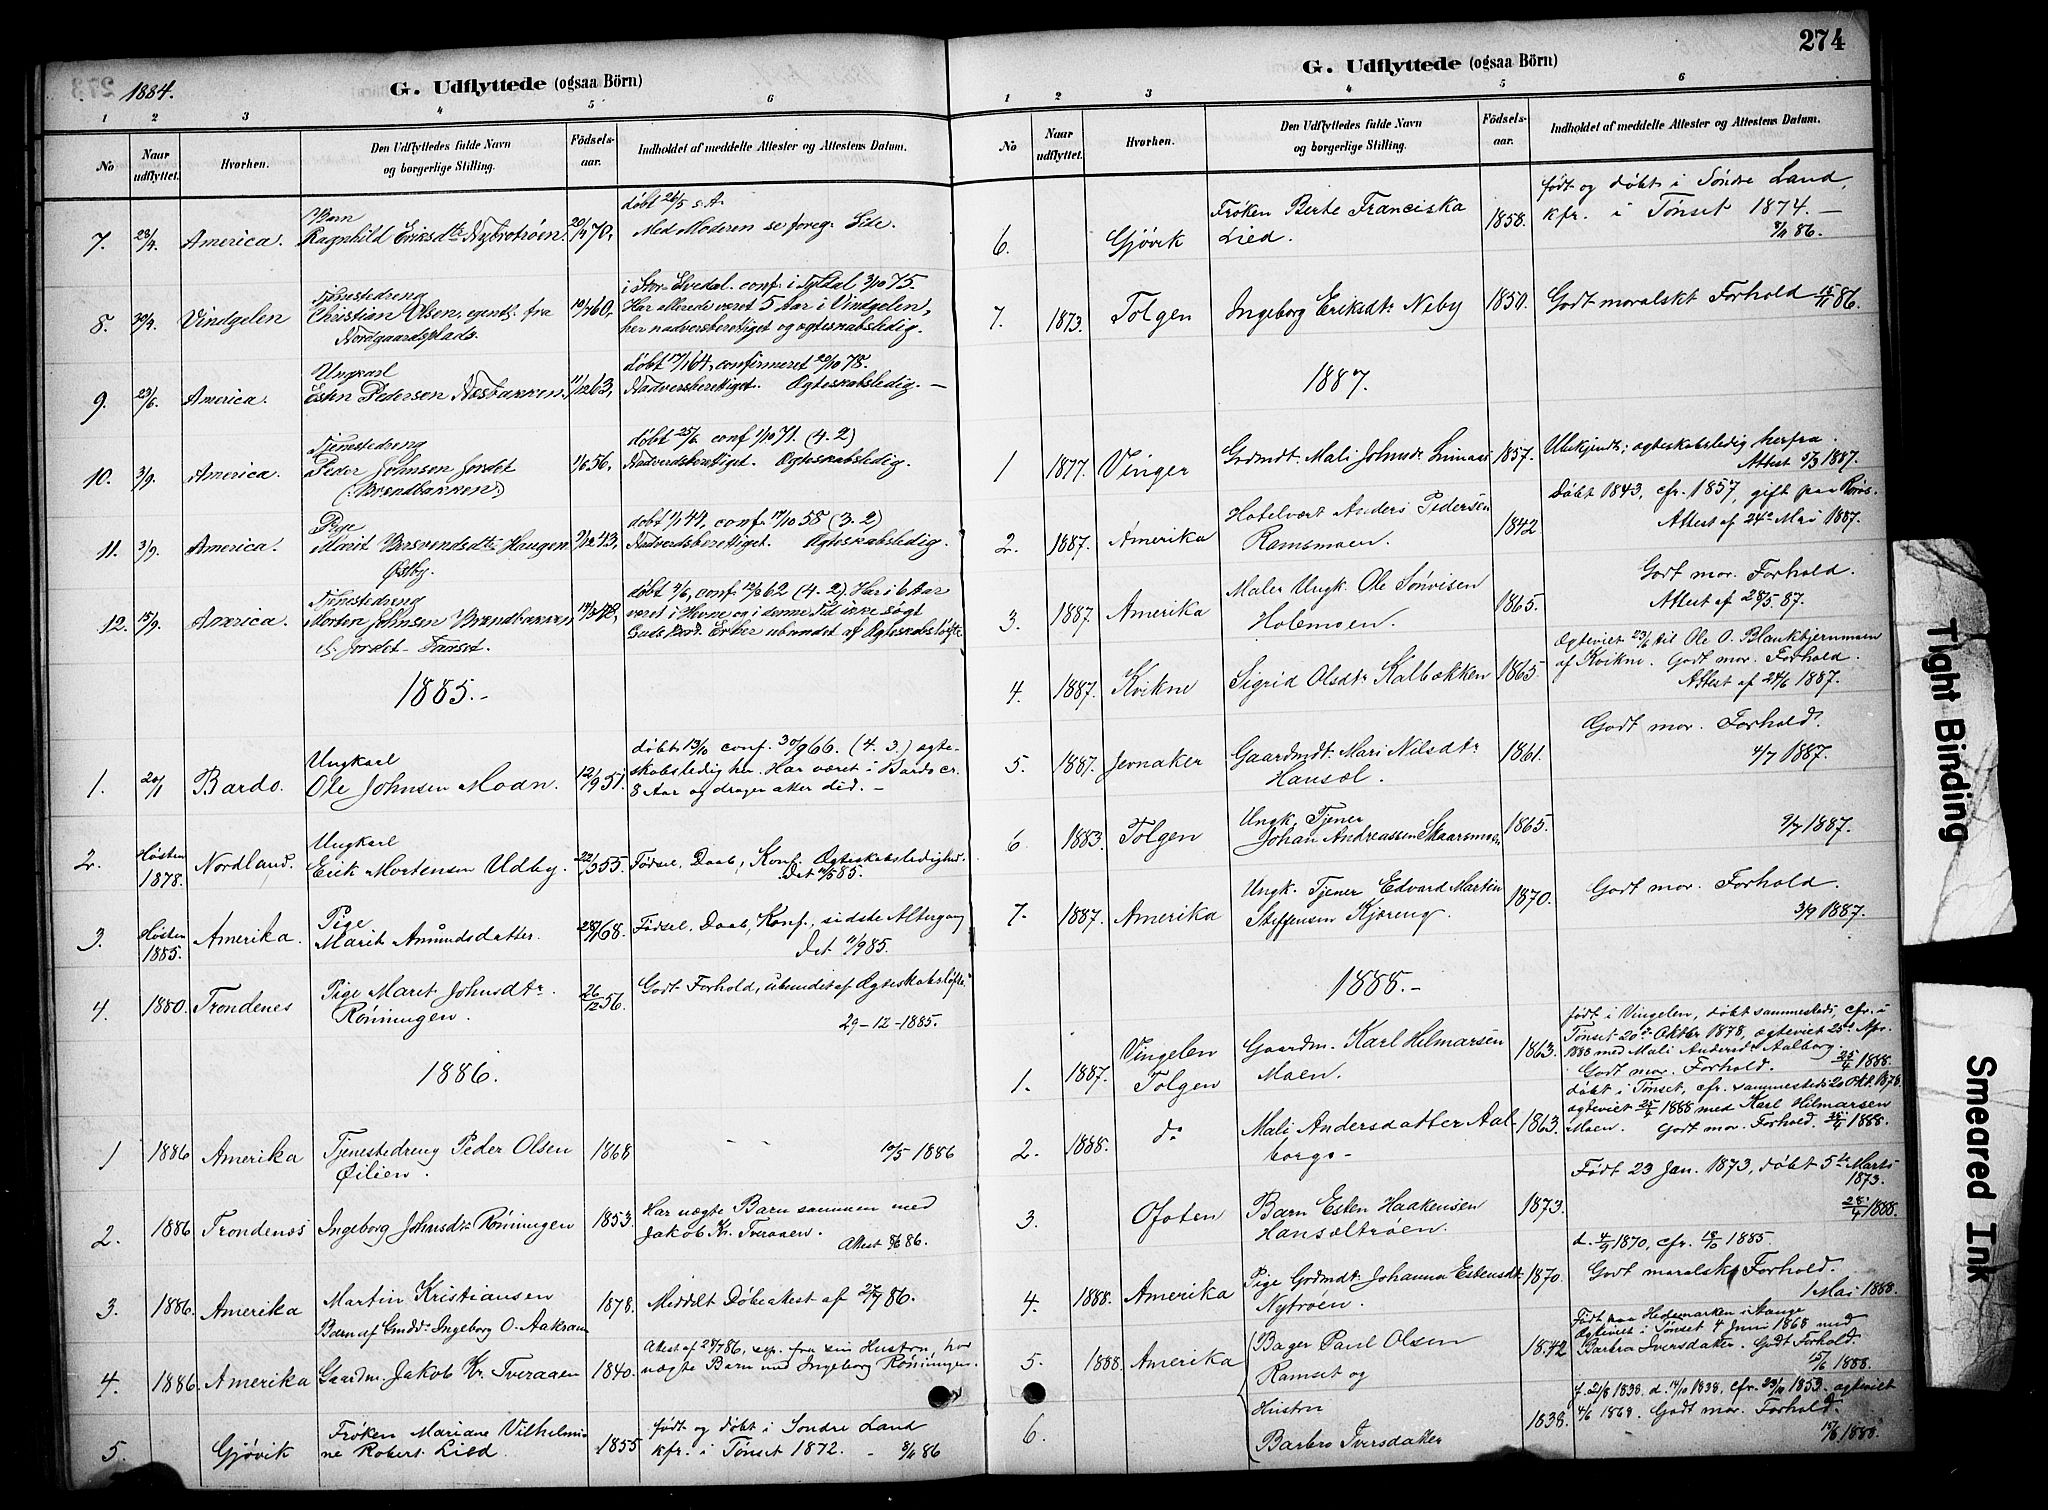 1884.
G. Udflyttede (ogsaa Börn)
1 2 3 4 5 6
No
Naar udflyttet.
Hvorhen.
Den Udflyttedes fulde Navn og borgerlige Stilling.
Födsels-aar.
Indholdet af meddelte Attester og Attestens Datum.
7. 23/4. America. Barn Ragnhild Eriksdtr Nybrotrøen, 70,
døbt 26/5 s. A.
Med Moderen se foreg. Side.
8. 30/4. Vindgelen
Tjenestedreng
Christian Olsen, egentl. fra
Nordgaardsplads. 60,
conf. i Tyldal, 3/10 75.
Har allerede været 5 Aar i Vindgelen,
her nadverberettiget og ægteskabsledig.
9. 23/6. America.
Ungkarl
Esten Pedersen Næsbakken, 11/12 63,
døbt 17/1 64, confirmeret 20/10 78.
Nadverberettiget. Ægteskabsledig. —
10. 3/9. America.
Tjenestedreng
Peder Johnsen Jordet
(: Brændbakken :) 56,
døbt 25/6 conf. 1/10 71. (4. 2)
Nadverdsberettiget. Ægteskabsledig.
11. 3/9. America.
Pige
Marit Bersvendsdtr Haugen
Østby. 43,
conf. 17/10 58 (3. 2)
Nadverdsberettiget. Ægteskabsledig.
12. 15/9. America.
Tjenestedreng
Morten Johnsen Brændbakken
Jordet - Tønset. 48,
conf. 12/10 62 (4. 2). Har i 6 Aar
været i Hevne og i denne Tid ikke søgt
Guds Bord. Er her ubundet af Ægteskabsløfte
1885. –
1. 20/1 Bardo.
Ungkarl
Ole Johnsen Moan. 12/9 51.
døbt 13/10 conf. 30/9 66. (4. 3.) ægte-
skabsledig her. Har været i Bardo cr.
8 Aar og drager atter did. —
2. Høsten 1878. Nordland.
Ungkarl
Erik Mortensen Udby. 22/3 55
Fødsel, Daab, Konf. Ægteskabsledighed.
Dat 11/5 85.
3. Høsten 1885. Amerika.
Pige
Marit Amundsdatter. 68.
Fødsel, Daab, Konf., sidste Altergang
Dat 11/9 85.
4. 1880. Trondenes
Pige Maret Johnsdtr
Rønningen. 26/12 56.
Godt Forhold, ubundet af Ægteskabsløfte
29-12-1885.
1886.
1 1886 Amerika
Tjenestedreng Peder Olsen
Øilien. 1868
— — 10/5 1886
2. 1886 Trondenæs Ingeborg Johnsdtr Rønningen 1853.
Har uægte Barn sammen med
Jakob Kr. Tveraaen.
Attest 86.
3. 1886. Amerika
Martin Kristiansen
Barn af Gmdtr Ingeborg O. Aakran 1878.
Meddelt Døbeattest af 27/7 86.
4. 1886. Amerika Gaardm. Jakob Kr. Tveraaen 1840.
Attest af 28/7 86, sep. fra sin Hustru, har
uægte Barn med Ingeborg Rønningen.
5. Gjøvik
Frøken Mariane Vilhelmi-
ne Robert Lied 1855
født og døbt i Søndre Land
kfr. i Tønset 1872. – 86
274
G. Udflyttede (ogsaa Börn)
1 2 3 4 5 6
No
Naar udflyttet.
Hvorhen.
Den Udflyttedes fulde Navn og borgerlige Stilling.
Födsels-aar.
Indholdet af meddelte Attester og Attestens Datum.
6. Gjøvik
Frøken Berte Franciska
Lied. 1858.
født og døbt i Søndre Land,
kfr. i Tønset 1874. —
86.
7. 1873. Tolgen Ingeborg Eriksdtr Neby 1850. Godt moralskt Forhold 15/11 86.
1887.
1 1877. Vinger Grdmdtr Mali Johnsdtr 1857.
Ubekjendt; ægteskabsledig herfra.
Attest 1887.
2. 1887. Amerika
Hotelvært Anders Pedersen
Ramsmoen. 1842
Døbt 1843, cfr. 1857, gift paa Røros.
Attest af 24de Mai 1887.
3. 1887. Amerika
Maler Ungk. Ole Sønvisen
Holemoen. 1865.
Godt mor. Forhold.
Attest af 28/5 87.
4 1887. Kvikne Sigrid Olsdtr Kalbækken 1865.
Ægteviet 23/6 til Ole O. Blankkjernmoen
af Kvikne. Godt mor. Forhold.
Attest af 24/6 1887.
5. 1887. Jevnaker
Gaardmdtr Mari Nilsdtr
Hansæl. 1861.
Godt mor. Forhold.
4/7 1887.
6 1883. Tolgen
Ungk. Tjener
Johan Andreassen Skaarsmoen 1865.
9/7 1887.
7. 1887. Amerika
Ungk. Tjener Edvard Martin
Steffensen Kjøreng. 1870.
Godt mor. Forhold.
3/9 1887.
1888. –
1. 1887. Vingelen Tolgen
Gaardm. Karl Hilmarsen
Moen. 1863.
født i Vingelen, døbt sammesteds, cfr. i
Tønset 20de Oktbr. 1878, ægteviet 25de Apr.
1888 med Mali Andersdtr Aalborg.
Godt mor. Forhold. 25/4 1888.
2. 1888. do
Mali Andersdatter Aal-
borg. – 1863.
døbt i Tønset, cfr. sammesteds 20 Okt. 1878,
ægteviet 25/4 1888 med Karl Hilmarsen
Moen. Godt mor. Forhold. 25/4 1888.
3. Ofoten
Barn Esten Haakensen
Hansæltrøen. 1873.
Født 23 Jan. 1873, døbt 5te Marts
1873.
28/4 1888.
4. 1888. Amerika
Pige Grdmdtr Johanna Estensdtr
Nytrøen. 1870.
d. 4/9 1870, cfr. 18/10 1885.
Godt moralsk Forhold.
1 Mai 1888.
5. 1888. Amerika
Bager Paul Olsen
Ramset og 1842
Født paa Hedemarken i Stange
Ægteviet i Tønset 4 Juni 1868 med
Barbro Iversdatter. Godt Forhold.
15/6 1888.
6.
Hustru
Barbro Iversdatter 1838.
f. 21/8 1838. d. 14/10 1838, cfr. 23/10 1853. ægteviet
4/6 1868. Godt mor. Forhold.
15/6 1888.
Tight Binding
Smeared Ink